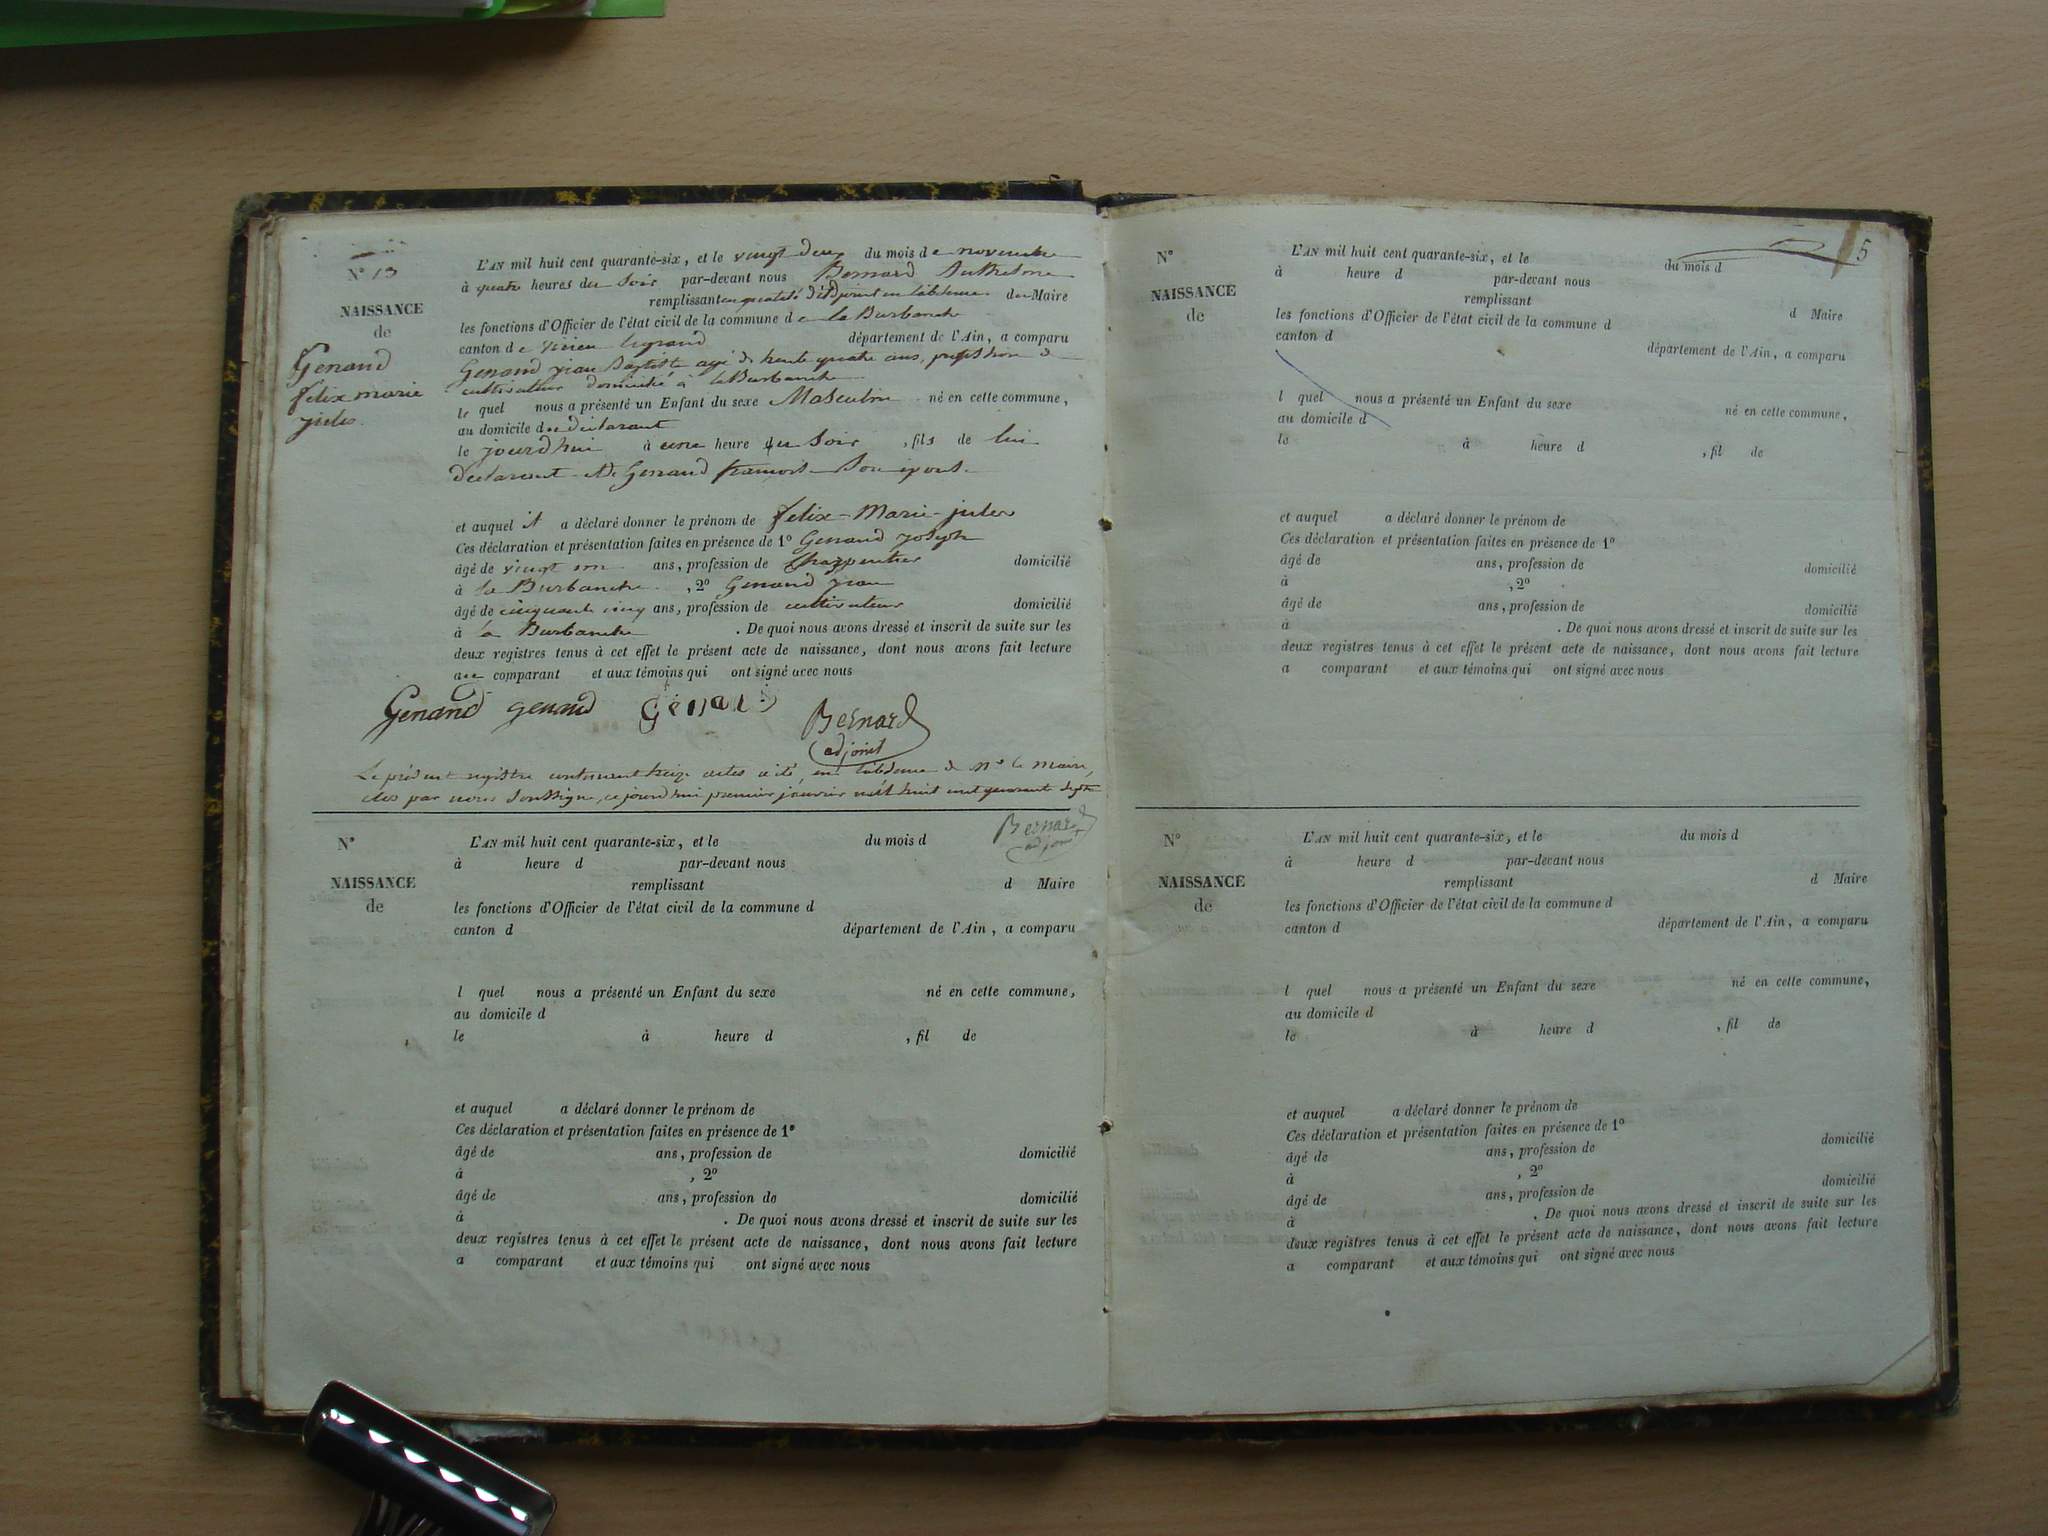 N° 13
NAISSANCE
de
Genand
felix marie
jules
L'AN mil huit cent quarante-six, et le vingt deux du mois de novembre
à quatre heures du soir par-devant nous Bernard Anthelme
remplissant en qualité d'adjoint en l'absence du Maire
les fonctions d'Officier de l'état civil de la commune de la Burbanche
canton de virieu legrand département de l'Ain, a comparu
Genand jean Baptiste agé de trente quatre ans, profession de
cultivateur domicilié à la Burbanche
le quel nous a présenté un Enfant du sexe Masculin né en cette commune,
au domicile du déclarant
le jourd'hui à une heure du soir, fils de lui
déclarant et de Genand son epouse
et auquel il a déclaré donner le prénom de felix-Marie-jules
Ces déclaration et présentation faites en présence de 1° Genand joseph
âgé de vingt ans, profession de Charpentier domicilié
à la Burbanche, 2° Genand jean
âgé de cinquante cinq ans, profession de cultivateur domicilié
à la Burbanche. De quoi nous avons dressé et inscrit de suite sur les
deux registres tenus à cet effet le présent acte de naissance, dont nous avons fait lecture
au comparant et aux témoins qui ont signé avec nous
Genand genand Génand Bernard
adjoint
Le présent registre contenant treize actes a été, en l'absence de Mr le maire,
clos par nous soussigné, ce jourd'hui premier janvier mil huit cent quarante sept
Bernard
adjoint
N°
NAISSANCE
de
L'AN mil huit cent quarante-six, et le du mois d
à heure d par-devant nous
remplissant d Maire
les fonctions d'Officier de l'état civil de la commune d
canton d département de l'Ain, a comparu
l quel nous a présenté un Enfant du sexe né en cette commune,
au domicile d
le à heure d , fil de
et auquel a déclaré donner le prénom de
Ces déclaration et présentation faites en présence de 1°
âgé de ans, profession de domicilié
à , 2°
âgé de ans, profession de domicilié
à . De quoi nous avons dressé et inscrit de suite sur les
deux registres tenus à cet effet le présent acte de naissance, dont nous avons fait lecture
a comparant et aux témoins qui ont signé avec nous
5
N°
NAISSANCE
de
L'AN mil huit cent quarante-six, et le du mois d
à heure d par-devant nous
remplissant d Maire
les fonctions d'Officier de l'état civil de la commune d
canton d département de l'Ain, a comparu
l quel nous a présenté un Enfant du sexe né en cette commune,
au domicile d
le à heure d , fil de
et auquel a déclaré donner le prénom de
Ces déclaration et présentation faites en présence de 1°
âgé de ans, profession de domicilié
à , 2°
âgé de ans, profession de domicilié
à . De quoi nous avons dressé et inscrit de suite sur les
deux registres tenus à cet effet le présent acte de naissance, dont nous avons fait lecture
a comparant et aux témoins qui ont signé avec nous
N°
NAISSANCE
de
L'AN mil huit cent quarante-six, et le du mois d
à heure d par-devant nous
remplissant d Maire
les fonctions d'Officier de l'état civil de la commune d
canton d département de l'Ain, a comparu
l quel nous a présenté un Enfant du sexe né en cette commune,
au domicile d
le à heure d , fil de
et auquel a déclaré donner le prénom de
Ces déclaration et présentation faites en présence de 1°
âgé de ans, profession de domicilié
à , 2°
âgé de ans, profession de domicilié
à . De quoi nous avons dressé et inscrit de suite sur les
deux registres tenus à cet effet le présent acte de naissance, dont nous avons fait lecture
a comparant et aux témoins qui ont signé avec nous